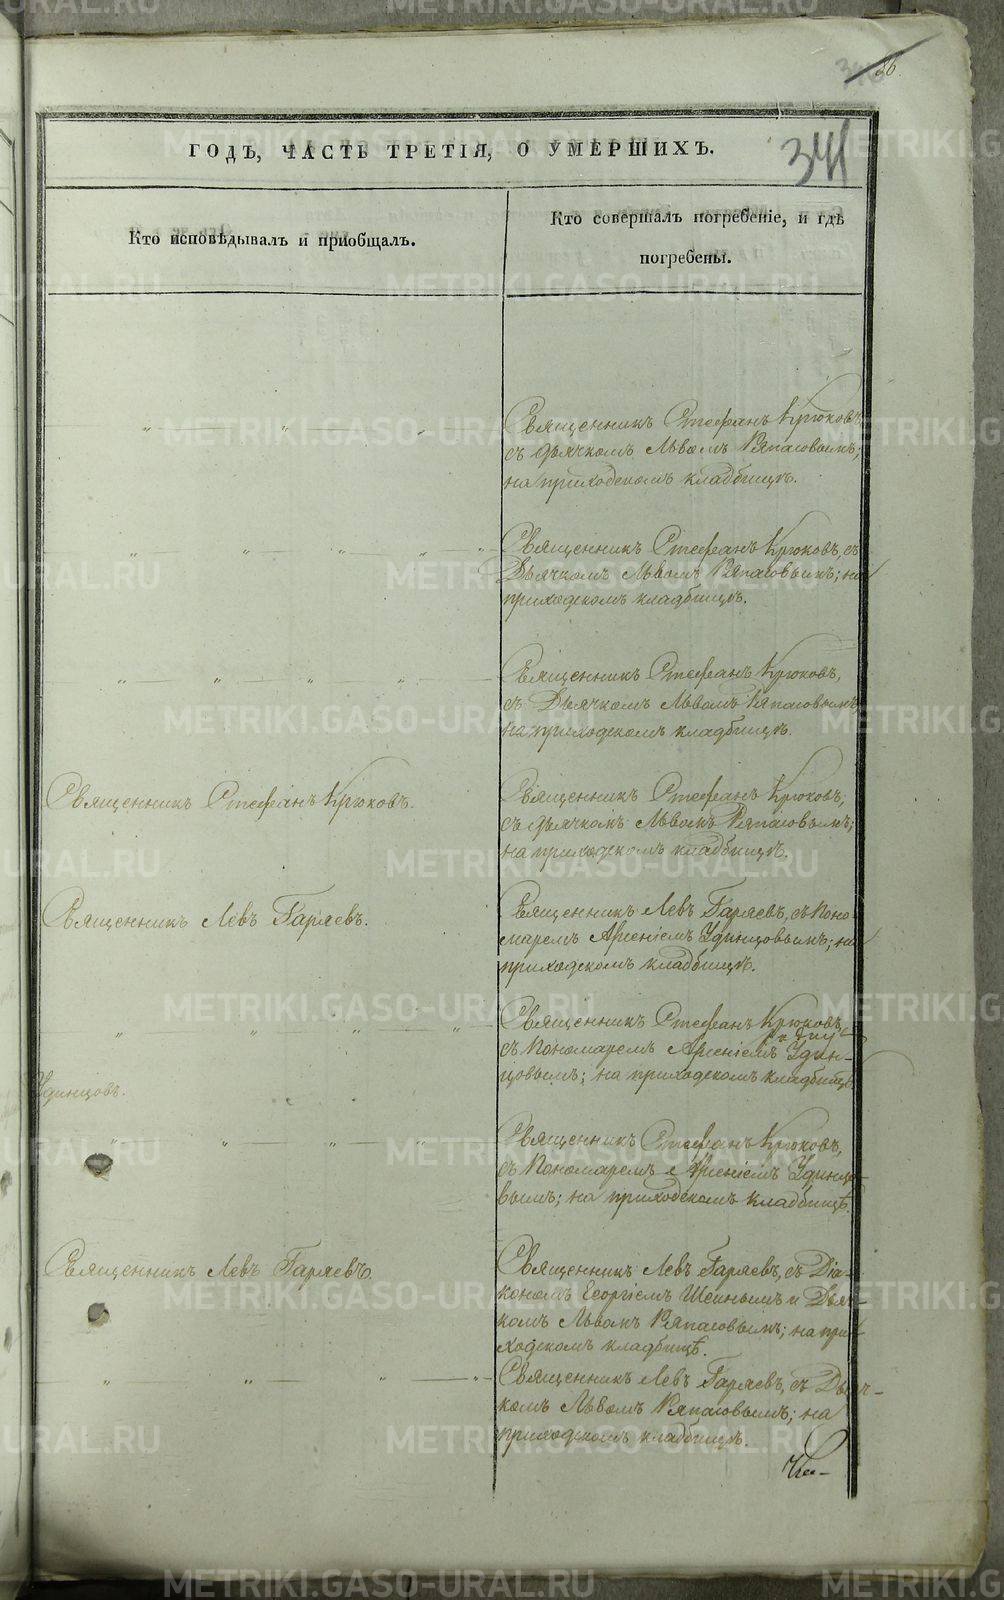 86.
341
ГОДЪ, ЧАСТЬ ТРЕТІЯ, О УМЕРШИХЪ.
Кто исповѣдывалъ и пріобщалъ.
Кто совершалъ погребеніе, и гдѣ
погребены.
Священникъ Стефанъ Крюковъ,
съ дьячкомъ Львомъ Ряпасовымъ;
на приходскомъ кладбищѣ.
Священникъ Стефанъ Крюковъ, съ
Дьячкомъ Львомъ Ряпасовымъ; на
приходскомъ кладбищѣ.
Священникъ Стефанъ Крюковъ,
съ Дьячкомъ Львомъ Ряпасовымъ
на приходскомъ кладбищѣ.
Священникъ Стефанъ Крюковъ.
Священникъ Стефанъ Крюковъ,
съ дьячкомъ Львомъ Ряпасовымъ;
на приходскомъ кладбищѣ.
Священникъ Левъ Гаряевъ.
Священникъ Левъ Гаряевъ, съ Поно-
маремъ Арсеніемъ Удинцовымъ; на
приходскомъ кладбищѣ.
Священникъ Стефанъ Крюковъ,
съ Пономаремъ Арсеніемъ Удин-
цовымъ; на приходскомъ кладбищѣ
Удинцовъ.
Священникъ Стефанъ Крюковъ,
съ Пономаремъ Арсеніемъ Удинцо-
вымъ; на приходскомъ кладбищѣ.
Священникъ Левъ Гаряевъ.
Священникъ Левъ Гаряевъ, съ Діа-
кономъ Георгіемъ Шеинымъ и Дьяч-
комъ Львомъ Ряпасовымъ; на при-
ходскомъ кладбищѣ.
Священникъ Левъ Гаряевъ, съ Дьяч-
комъ Львомъ Ряпасовымъ; на
приходскомъ кладбищѣ.
METRIKI.GASO-URAL.RU